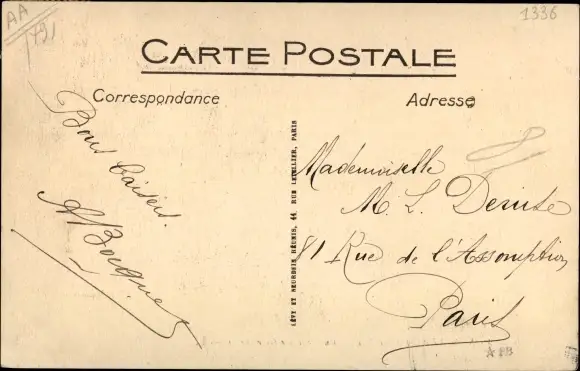 AA
791
1336
CARTE POSTALE
Correspondance
Adresse
Bons baisers.
LÉVY ET NEURDEIN RÉUNIS, 44, RUE LETELLIER, PARIS
Mademoiselle
M. L. Denise
81 Rue de l'Assomption
Paris